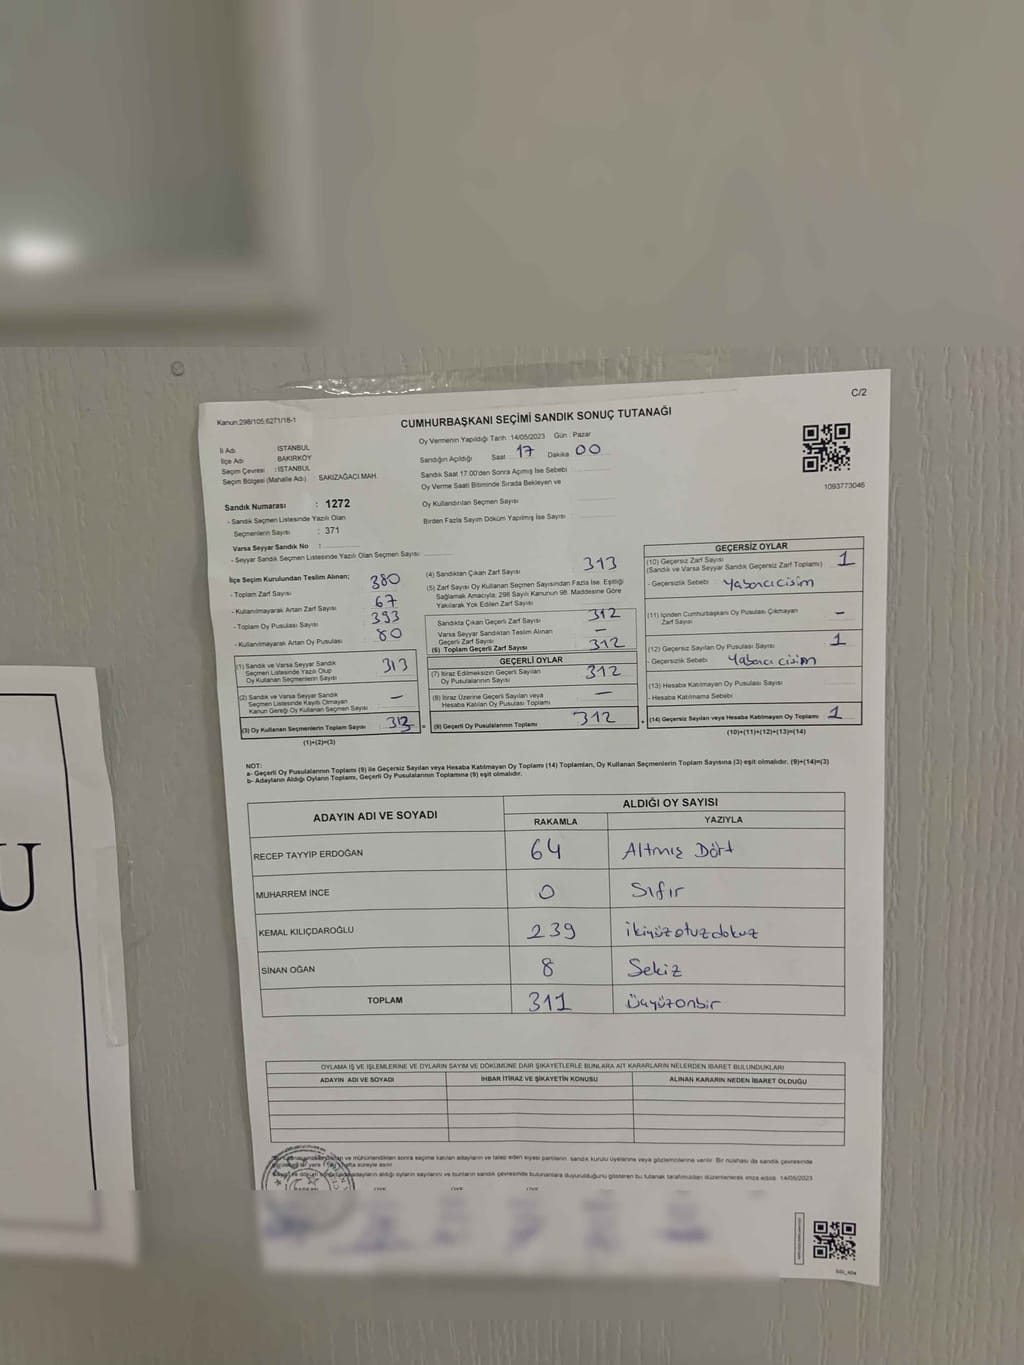 C/2
Kanun:298/105:6271/18-1
CUMHURBAŞKANI SEÇİMİ SANDIK SONUÇ TUTANAĞI
1093773046
İl Adı : İSTANBUL
İlçe Adı : BAKIRKÖY
Seçim Çevresi : İSTANBUL
Seçim Bölgesi (Mahalle Adı) : SAKIZAĞACI MAH.
Sandık Numarası : 1272
- Sandık Seçmen Listesinde Yazılı Olan
Seçmenlerin Sayısı : 371
Varsa Seyyar Sandık No :
- Seyyar Sandık Seçmen Listesinde Yazılı Olan Seçmen Sayısı:
Oy Vermenin Yapıldığı Tarih :14/05/2023 Gün : Pazar
Sandığın Açıldığı Saat : 17 Dakika 00
Sandık Saat 17:00'den Sonra Açılmış İse Sebebi :
Oy Verme Saati Bitiminde Sırada Bekleyen ve
Oy Kullandırılan Seçmen Sayısı
Birden Fazla Sayım Döküm Yapılmış İse Sayısı :
İlçe Seçim Kurulundan Teslim Alınan;
- Toplam Zarf Sayısı 380
- Kullanılmayarak Artan Zarf Sayısı 67
- Toplam Oy Pusulası Sayısı 393
- Kullanılmayarak Artan Oy Pusulası 80
(1) Sandık ve Varsa Seyyar Sandık
Seçmen Listesinde Yazılı Olup
Oy Kullanan Seçmenlerin Sayısı 313
(2) Sandık ve Varsa Seyyar Sandık
Seçmen Listesinde Kayıtlı Olmayan
Kanun Gereği Oy Kullanan Seçmen Sayısı —
(3) Oy Kullanan Seçmenlerin Toplam Sayısı 313 =
(1)+(2)=(3)
(4) Sandıktan Çıkan Zarf Sayısı 313
(5) Zarf Sayısı Oy Kullanan Seçmen Sayısından Fazla İse, Eşitliği
Sağlamak Amacıyla, 298 Sayılı Kanunun 98. Maddesine Göre
Yakılarak Yok Edilen Zarf Sayısı
Sandıkta Çıkan Geçerli Zarf Sayısı 312
Varsa Seyyar Sandıktan Teslim Alınan
Geçerli Zarf Sayısı —
(6) Toplam Geçerli Zarf Sayısı 312
GEÇERLİ OYLAR
(7) İtiraz Edilmeksizin Geçerli Sayılan
Oy Pusulalarının Sayısı 312
(8) İtiraz Üzerine Geçerli Sayılan veya
Hesaba Katılan Oy Pusulası Toplamı —
(9) Geçerli Oy Pusulalarının Toplamı 312 +
GEÇERSİZ OYLAR
(10) Geçersiz Zarf Sayısı 1
(Sandık ve Varsa Seyyar Sandık Geçersiz Zarf Toplamı)
- Geçersizlik Sebebi Yabancı cisim
(11) İçinden Cumhurbaşkanı Oy Pusulası Çıkmayan
Zarf Sayısı —
(12) Geçersiz Sayılan Oy Pusulası Sayısı 1
- Geçersizlik Sebebi Yabancı cisim
(13) Hesaba Katılmayan Oy Pusulası Sayısı
- Hesaba Katılmama Sebebi
(14) Geçersiz Sayılan veya Hesaba Katılmayan Oy Toplamı 1
(10)+(11)+(12)+(13)=(14)
NOT:
a- Geçerli Oy Pusulalarının Toplamı (9) ile Geçersiz Sayılan veya Hesaba Katılmayan Oy Toplamı (14) Toplamları, Oy Kullanan Seçmenlerin Toplam Sayısına (3) eşit olmalıdır. (9)+(14)=(3)
b- Adayların Aldığı Oyların Toplamı, Geçerli Oy Pusulalarının Toplamına (9) eşit olmalıdır.
ADAYIN ADI VE SOYADI
ALDIĞI OY SAYISI
RAKAMLA YAZIYLA
RECEP TAYYİP ERDOĞAN 64 Altmış Dört
MUHARREM İNCE 0 Sıfır
KEMAL KILIÇDAROĞLU 239 ikiyüzotuzdokuz
SİNAN OĞAN 8 Sekiz
TOPLAM 311 üçyüzonbir
OYLAMA İŞ VE İŞLEMLERİNE VE OYLARIN SAYIM VE DÖKÜMÜNE DAİR ŞİKAYETLERLE BUNLARA AİT KARARLARIN NELERDEN İBARET BULUNDUKLARI
ADAYIN ADI VE SOYADI İHBAR İTİRAZ VE ŞİKAYETİN KONUSU ALINAN KARARIN NEDEN İBARET OLDUĞU
ve mühürlendikten sonra seçime katılan adayların ve talep eden siyasi partilerin, sandık kurulu üyelerine veya gözlemcilerine verilir. Bir nüshası da sandık çevresinde
hafta süreyle asılır.
adayların aldığı oyların sayılarını ve bunların sandık çevresinde bulunanlara duyurulduğunu gösteren bu tutanak tarafımızdan düzenlenerek imza edildi. 14/05/2023
U